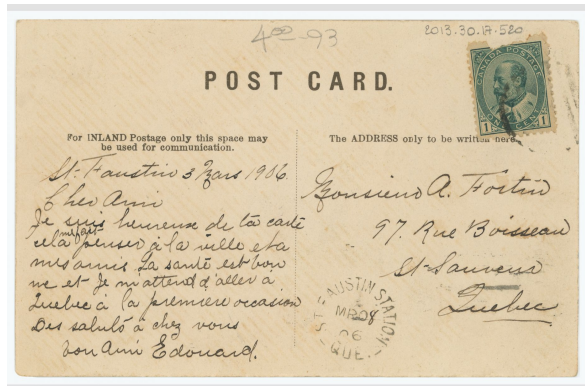 4.00-93
2013.30.17.520
CANADA POSTAGE
1 ONE CENT 1
POST CARD.
For INLAND Postage only this space may
be used for communication.
The ADDRESS only to be written here.
St-Faustin 3 Mars 1906
Cher Ami
Je suis heureux de ta carte
cela me fait penser à la ville et a
mes amis La santé est bon
ne et je m'attend d'aller à
Quebec à la première occasion
Des saluts à chez vous
ton Ami Edouard.
Monsieur A. Fortin
97. Rue Boisseau
St-Sauveur
Quebec
ST FAUSTIN STATION
MR 08
06
QUE.